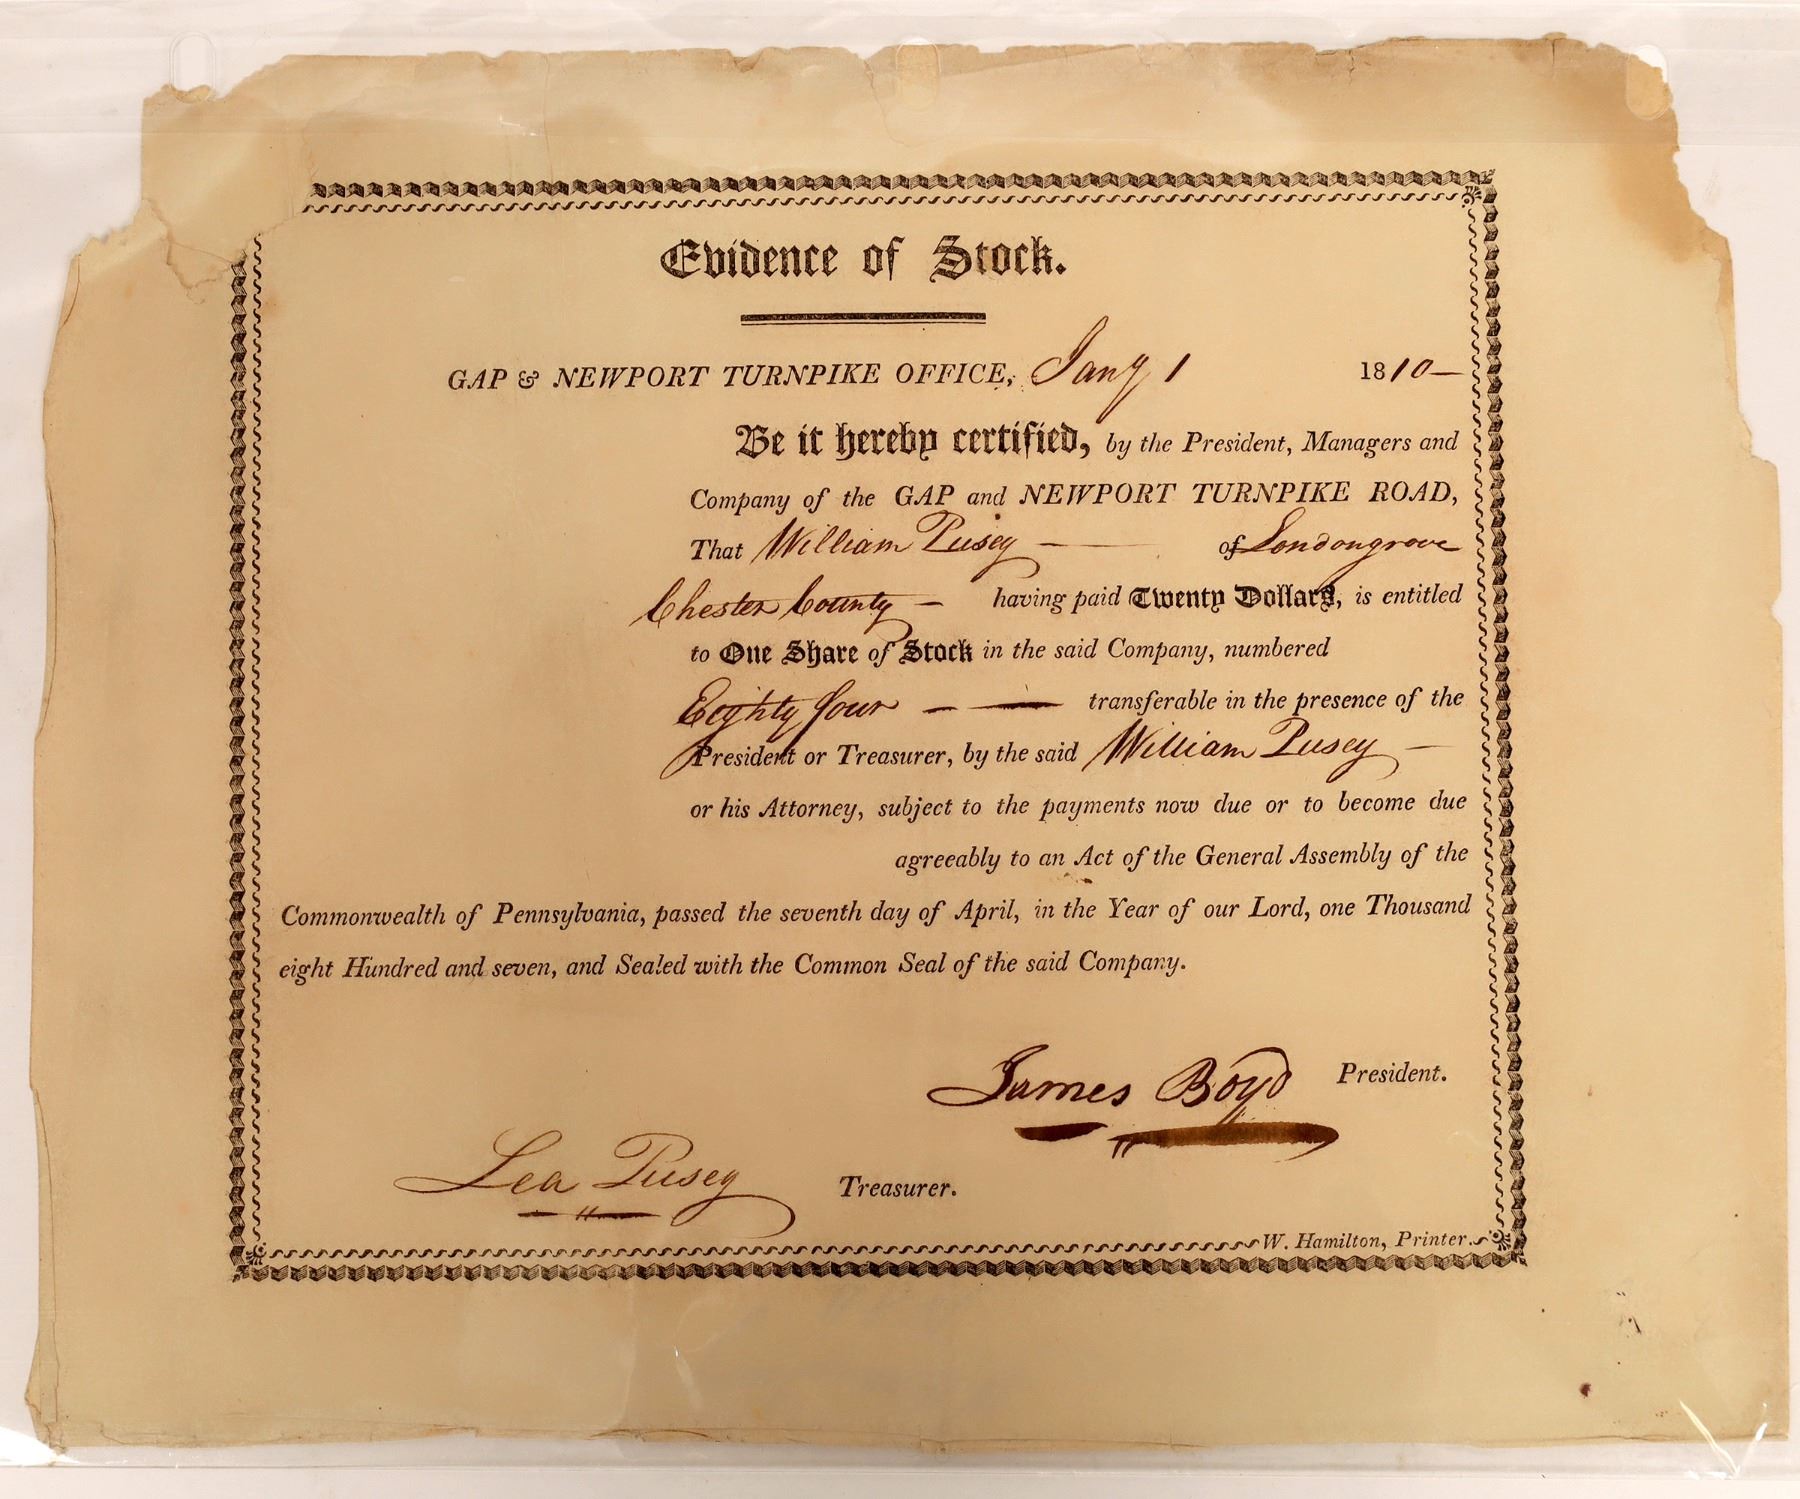 Evidence of Stock.
GAP & NEWPORT TURNPIKE OFFICE, Jany 1 1810
Be it hereby certified, by the President, Managers and
Company of the GAP and NEWPORT TURNPIKE ROAD,
That William Pusey of Londongrove
Chester County having paid Twenty Dollars, is entitled
to One Share of Stock in the said Company, numbered
Eighty four transferable in the presence of the
President or Treasurer, by the said William Pusey
or his Attorney, subject to the payments now due or to become due
agreeably to an Act of the General Assembly of the
Commonwealth of Pennsylvania, passed the seventh day of April, in the Year of our Lord, one Thousand
eight Hundred and seven, and Sealed with the Common Seal of the said Company.
James Boyd President.
Lea Pusey Treasurer.
W. Hamilton, Printer.